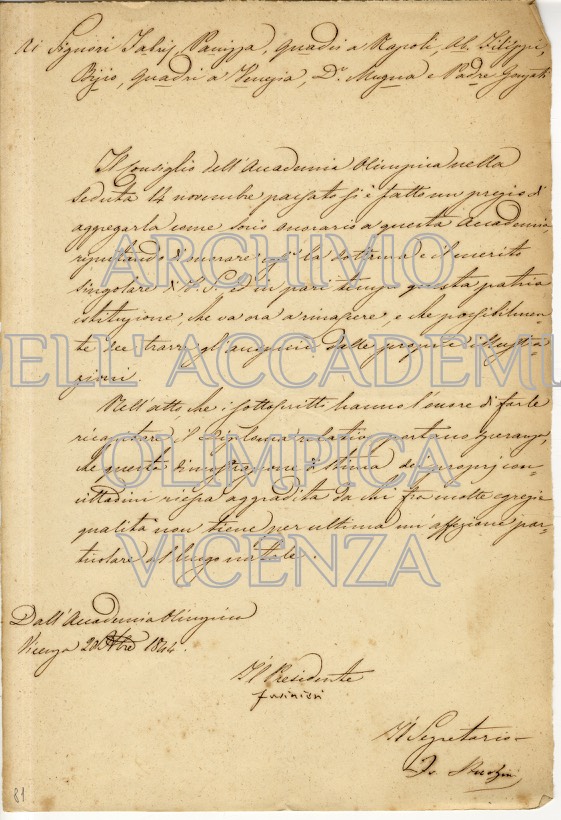 Ai Signori Fabris, Panizza, Quadri a Napoli, Ab. Filippi,
Bizio, Quadri a Venezia, Dr. Mugna e Padre
Il Consiglio dell'Accademia Olimpica nella
seduta 14 novembre passato si è fatto un pregio di
aggregarla come socio onorario a questa Accademia,
reputando di onorare così la dottrina e il merito
singolare di V. S. ed in pari tempo questa patria
istituzione, che va ora a rinascere, e che possibilmen-
te dee trarre gl'auspicii dalle proprie
Nell'atto che i sottoscritti hanno l'onore di farle
ricapitare il Diploma relativo portano speranza,
che questa dimostrazione di stima dei proprj con-
cittadini riesca aggradita da chi fra molte egregie
qualità non tiene per ultima un'affezione par-
ticolare al luogo natale.
Dall'Accademia Olimpica
Vicenza 1844.
Il Presidente
Fusinieri
Il Segretario
81
ARCHIVIO
DELL'ACCADEMIA
OLIMPICA
VICENZA